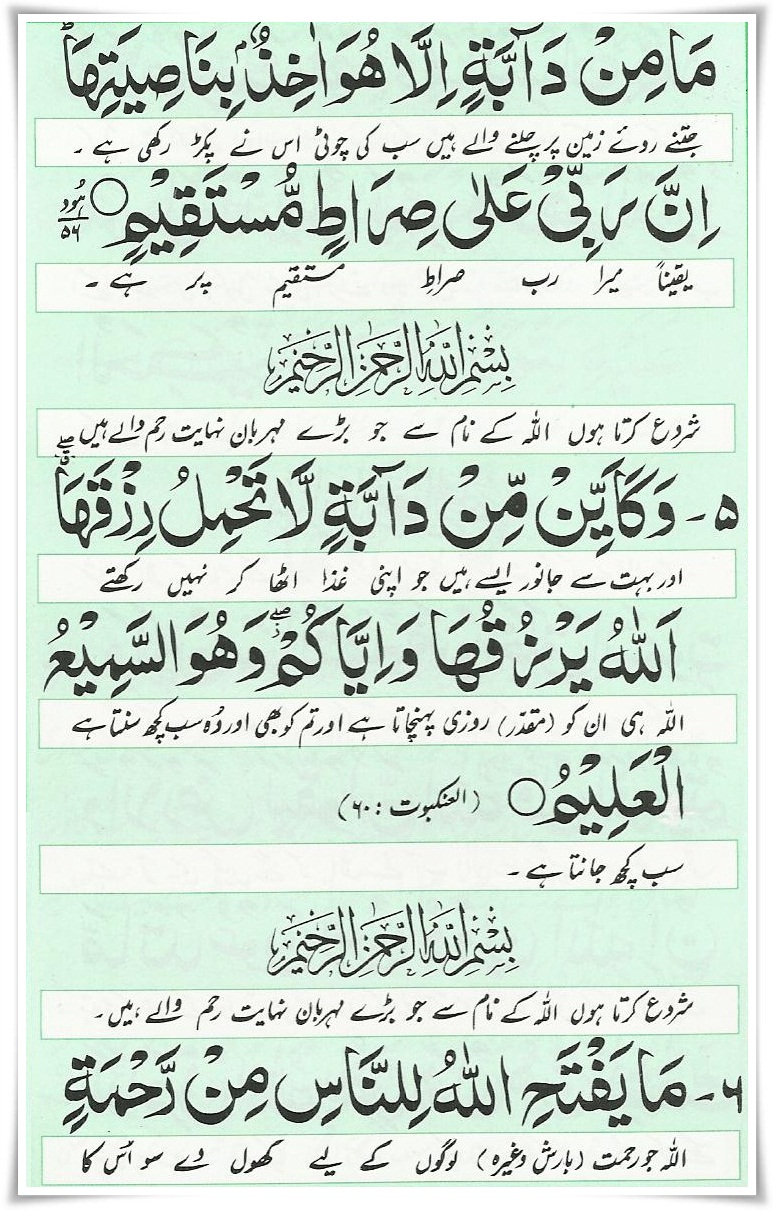 مَا مِنْ دَآبَّةٍ اِلَّا هُوَ اٰخِذٌۢ بِنَاصِيَتِهَا ؕ
جتنے روئے زمین پر چلنے والے ہیں سب کی چوٹی اس نے پکڑ رکھی ہے ۔
اِنَّ رَبِّیْ عَلٰی صِرَاطٍ مُّسْتَقِيْمٍ ○ ہُود ۵۶
یقیناً میرا رب صراطِ مستقیم پر ہے ۔
بِسْمِ اللهِ الرَّحْمٰنِ الرَّحِيْمِ
شروع کرتا ہوں اللہ کے نام سے جو بڑے مہربان نہایت رحم والے ہیں
۵- وَكَاَيِّنْ مِّنْ دَآبَّةٍ لَّا تَحْمِلُ رِزْقَهَا ۖۗ
اور بہت سے جانور ایسے ہیں جو اپنی غذا اٹھا کر نہیں رکھتے
اَللهُ يَرْزُقُهَا وَاِيَّاكُمْ ۖ وَهُوَ السَّمِيْعُ
اللہ ہی ان کو (مقدّر) روزی پہنچاتا ہے اور تم کو بھی اور وُہ سب کچھ سنتا ہے
الْعَلِيْمُ ○ (العنکبوت : ۶۰)
سب کچھ جانتا ہے ۔
بِسْمِ اللهِ الرَّحْمٰنِ الرَّحِيْمِ
شروع کرتا ہوں اللہ کے نام سے جو بڑے مہربان نہایت رحم والے ہیں۔
۶- مَا يَفْتَحِ اللهُ لِلنَّاسِ مِنْ رَّحْمَةٍ
اللہ جو رحمت (بارش وغیرہ) لوگوں کے لیے کھول دے سو اُس کا